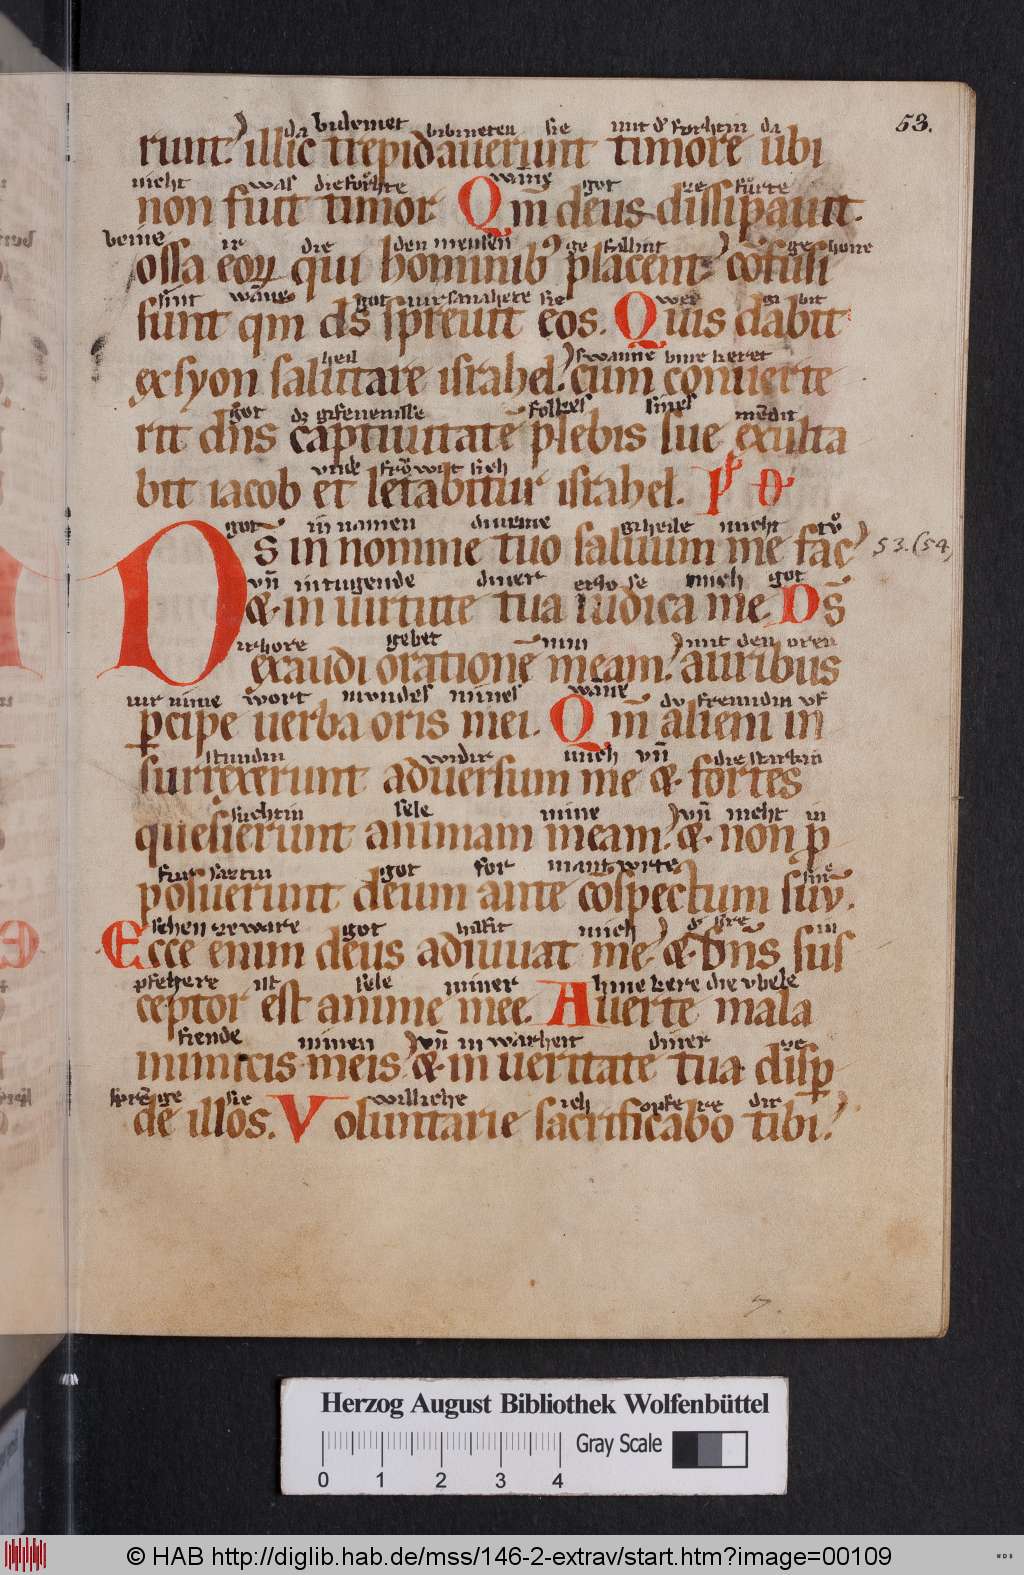 53.
da bidemet bibineten sie mit d̕ forhtin da
runt. illic trepidauerunt timore ubi
nicht was die forhte wāne got ze fůrte
non fuit timor Qm̄ deus dissipauit.
beine ir die den mensen ge fallint geshone
ossa eoꝝ qui hominibꝰ placent cōfusi
sint wāne got uirsmahete sie wer gi bit
sunt qm̄ ds̄ spreuit eos. Quis dabit
heil swanne bine keret
ex syon salutare israhel. cum conuerte
got dz gifenenisse folkes sines mēdit
rit dn̄s captiuitatē plebis sue exulta
vnde frowit sich
bit iacob et letabitur israhel. Ps D
got in namen dineme giheile mich tů
Ds̄ in nomine tuo saluum me fac
53.(54)
vn̄ in tugende diner mich got
& in uirtute tua iudica me. Ds̄
irhore gebet min mit den oren
exaudi orationē meam. auribus
uir nime wort mundes mines wāne dv fremdin vf
ꝑcipe uerba oris mei. Qm̄ alieni in
stundin widir mich vn̄ die starkin
surrexerunt aduersum me & fortes
suchtin sele mine vn̄ nicht in
quesierunt animam meam. & non ꝓ
fur saztin got for mantwrte sin̄
posuerunt deum ante cōspectum suū.
sehen zeware got hilfit mich d̕ h̕re in
Ecce enim deus adiuuat me & dn̄s sus
pfehere ist sele miner hine kere die vbele
ceptor est anime mee. Auerte mala
fiende minen vn̄ in warheit diner ze
inimicis meis & in ueritate tua disꝑ
sprēge sie williche ich opfere dir
de illos. Voluntarie sacrificabo tibi.
7.
Herzog August Bibliothek Wolfenbüttel
Gray Scale
0 1 2 3 4
© HAB http://diglib.hab.de/mss/146-2-extrav/start.htm?image=00109